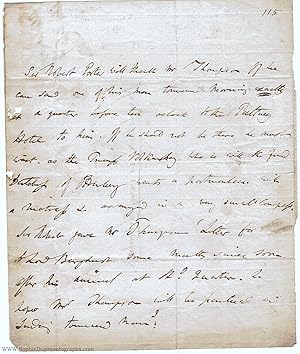 115
Sir Robert Porter will thank Mr Thompson if he
can send one of his men tomorrow morning exactly
at a quarter before ten oclock to the Pulteney
Hotel to him. If he should not be there he must
wait. as the Prince Volkonsky who is with the Grand
Dutchess of wants a portmanteau with
a mattress &c arranged in a very small compass.
Sir Robert gave Mr Thompson's letter over
to Lord Burghersh some months since soon
after his arrival at Hd Quarters. he
hopes Mr Thompson will be punctual in
sending tomorrow Morng
www.SophieDupreautographs.com